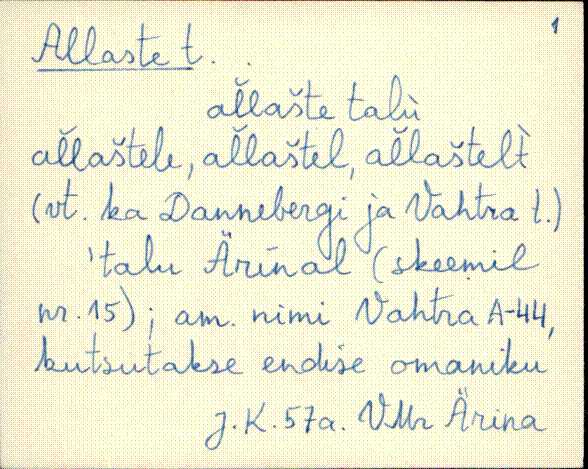 1
Allaste t.
al̆l̆ašte talù
al̆l̆aštele, al̆l̆aštel, al̆l̆aštelt̀
(vt. ka Dannebergi ja Vahtra t.)
'talu Ärinal (skeemil
nr. 15); am. nimi Vahtra A-44,
kutsutakse endise omaniku
J.K. 57a. VMr Ärina